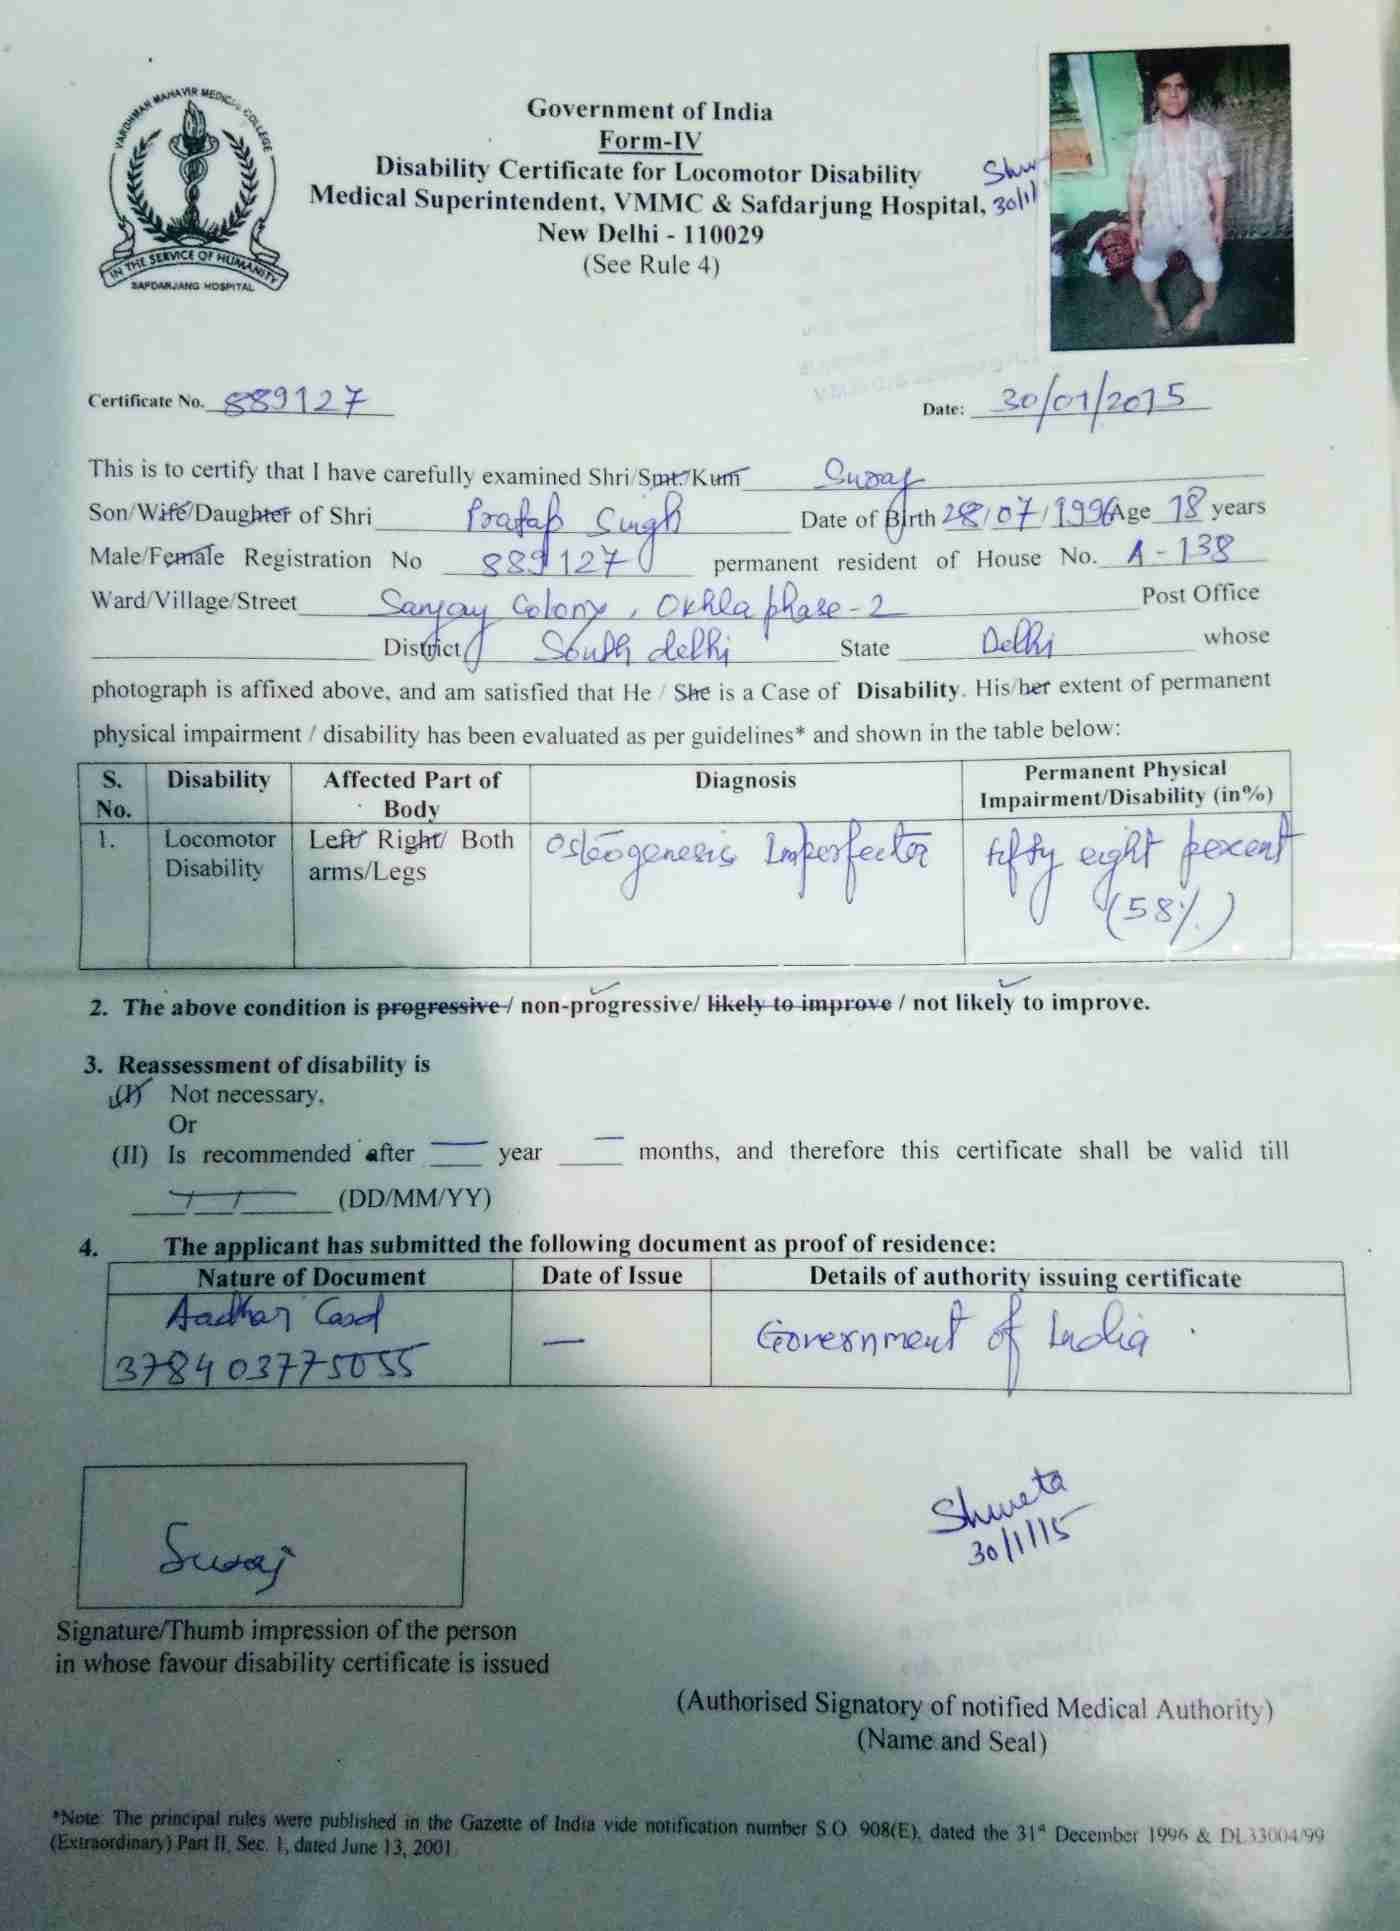 VARDHMAN MAHAVIR MEDICAL COLLEGE
IN THE SERVICE OF HUMANITY
SAFDARJANG HOSPITAL
Government of India
Form-IV
Disability Certificate for Locomotor Disability
Medical Superintendent, VMMC & Safdarjung Hospital,
New Delhi - 110029
(See Rule 4)
Certificate No. 889127 Date: 30/01/2015
This is to certify that I have carefully examined Shri/Smt./Kum Suraj
Son/Wife/Daughter of Shri Pratap Singh Date of Birth 28/07/1996 Age 18 years
Male/Female Registration No 889127 permanent resident of House No. A-138
Ward/Village/Street Sanjay Colony, Okhla phase-2 Post Office
District South delhi State Delhi whose
photograph is affixed above, and am satisfied that He / She is a Case of Disability. His/her extent of permanent
physical impairment / disability has been evaluated as per guidelines* and shown in the table below:
S. No. Disability Affected Part of Body Diagnosis Permanent Physical Impairment/Disability (in%)
1. Locomotor Disability Left/ Right/ Both arms/Legs Osteogenesis Imperfecta fifty eight percent (58%)
2. The above condition is progressive / non-progressive/ likely to improve / not likely to improve.
3. Reassessment of disability is
(I) Not necessary,
Or
(II) Is recommended after ___ year ___ months, and therefore this certificate shall be valid till
(DD/MM/YY)
4. The applicant has submitted the following document as proof of residence:
Nature of Document Date of Issue Details of authority issuing certificate
Aadhar Card — Government of India
378403775055
Suraj
Shweta
30/1/15
Signature/Thumb impression of the person
in whose favour disability certificate is issued
(Authorised Signatory of notified Medical Authority)
(Name and Seal)
*Note: The principal rules were published in the Gazette of India vide notification number S.O. 908(E), dated the 31st December 1996 & DL33004/99
(Extraordinary) Part II, Sec. 1, dated June 13, 2001